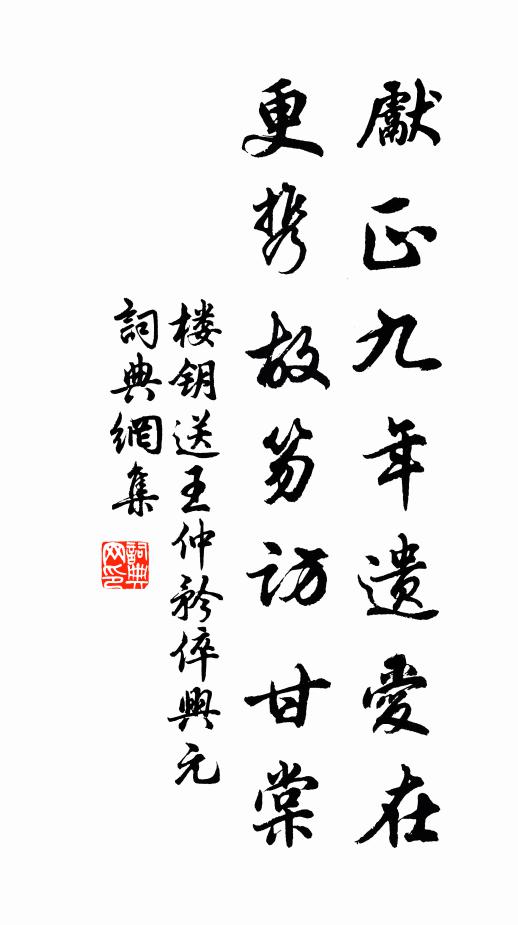 獻正九年遺愛在
更携故笏訪甘棠
楼钥送王仲矜倅興元
詞典網集
詞典网印